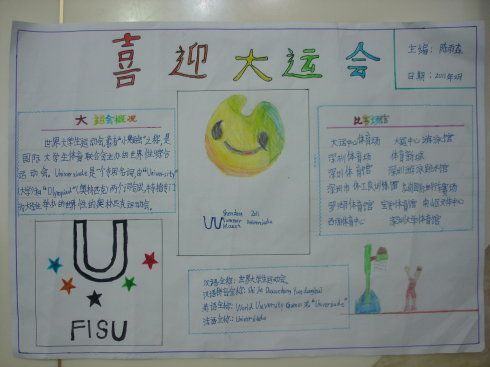 喜迎大运会
主编：
日期：2011年
大运会概况
世界大学生运动会,素有"小奥运会"之称,是
国际大学生体育联合会主办的世界性综合
运动会。Universiade是个专用名词,由"University"
大学)和"Olympiad"(奥林匹克)两个词合成,特指专门
为大学生举办的世界性的奥林匹克运动会。
U
FISU
Shenzhen 2011
Summer Universiade
比赛场馆
大运中心体育场 大运中心游泳馆
深圳体育场
深圳体育馆 深圳游泳跳水馆
深圳市体工大队训练馆
罗湖体育馆 宝安体育馆
西丽体育中心 深圳大学体育馆
汉语全称:世界大学生运动会
汉语拼音全称: Shi Jie Daxuesheng Yundonghui
英语全称: World University Games 或"Universiade"
法语全称: Universiade